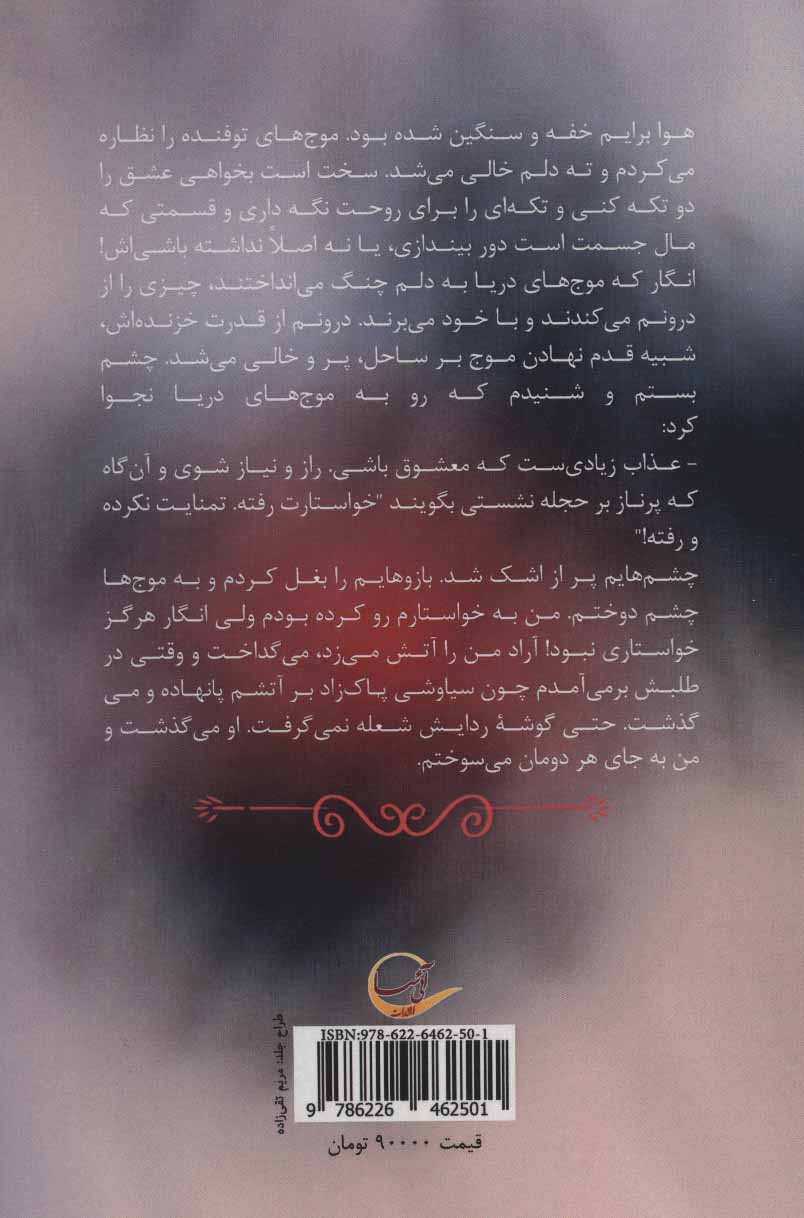 هوا برایم خفه و سنگین شده بود. موج‌های توفنده را نظاره
می‌کردم و ته دلم خالی می‌شد. سخت است بخواهی عشق را
دو تکه کنی و تکه‌ای را برای روحت نگه داری و قسمتی که
مال جسمت است دور بیندازی، یا نه اصلاً نداشته باشی‌اش!
انگار که موج‌های دریا به دلم چنگ می‌انداختند، چیزی را از
درونم می‌کندند و با خود می‌برند. درونم از قدرت خزنده‌اش،
شبیه قدم نهادن موج بر ساحل، پر و خالی می‌شد. چشم
بستم و شنیدم که رو به موج‌های دریا نجوا
کرد:
- عذاب زیادی‌ست که معشوق باشی. راز و نیاز شوی و آن‌گاه
که پرناز بر حجله نشستی بگویند "خواستارت رفته. تمنایت نکرده
و رفته!"
چشم‌هایم پر از اشک شد. بازوهایم را بغل کردم و به موج‌ها
چشم دوختم. من به خواستارم رو کرده بودم ولی انگار هرگز
خواستاری نبود! آراد من را آتش می‌زد، می‌گداخت و وقتی در
طلبش برمی‌آمدم چون سیاوشی پاک‌زاد بر آتشم پانهاده و می
گذشت. حتی گوشهٔ ردایش شعله نمی‌گرفت. او می‌گذشت و
من به جای هر دومان می‌سوختم.
انتشارات
ISBN:978-622-6462-50-1
9 786226 462501
طراح جلد: مریم تقی‌زاده
قیمت ۹۰۰۰۰ تومان